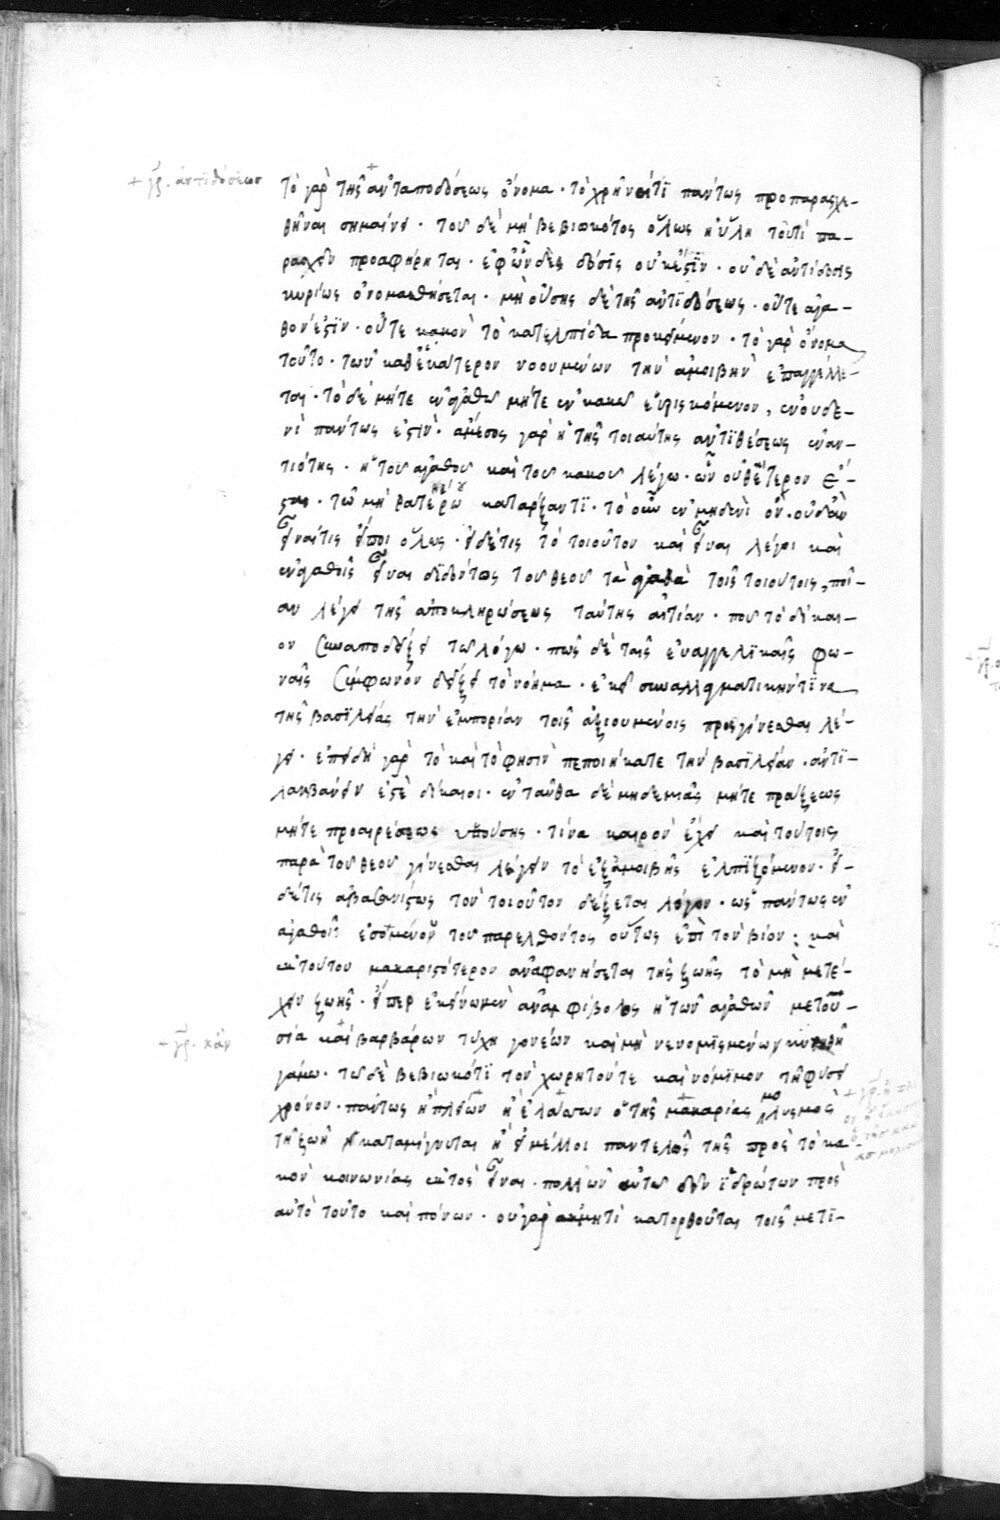 + γρ. ἀντιδόσεως
τὸ γὰρ τῆς ἀνταποδόσεως ὄνομα · τὸ χρῆναί τι πάντως προπαρασχε-
θῆναι σημαίνει · τοῦ δὲ μὴ βεβιωκότος ὅλως ἡ ὕλη τοῦ τί πα-
ρασχεῖν προαφήρηται · ἐφ ὧν δὲ δόσις οὐκ ἔστιν · οὐδὲ ἀντίδοσις
κυρίως ὀνομασθήσεται · μὴ οὔσης δὲ τῆς ἀντιδόσεως · οὔτε ἀγα-
θόν ἐστιν · οὔτε κακὸν τὸ κατ ἐλπίδα προκείμενον · τὸ γὰρ ὄνομα
τοῦτο · τῶν καθ ἑκάτερον νοουμένων τὴν ἀμοιβὴν ἐπαγγέλλε-
ται · τὸ δὲ μήτε ἐν ἀγαθῷ μήτε ἐν κακῷ εὑρισκόμενον, ἐν οὐδε-
νὶ πάντως ἐστὶν · ἄμεσος γὰρ ἡ τῆς τοιαύτης ἀντιθέσεως ἐναν-
τιότης · ἡ τοῦ ἀγαθοῦ καὶ τοῦ κακοῦ λέγω · ὧν οὐθέτερον ἔ-
σται · τῷ μὴ θατέρου κατάρξαντι · τὸ οὖν ἐν μηδενὶ ὂν · οὐδ ἂν
εἶναί τις εἴποι ὅλως · εἰ δέ τις τὸ τοιοῦτον καὶ εἶναι λέγοι καὶ
ἐν ἀγαθοῖς εἶναι διδόντος τοῦ θεοῦ τὰ ἀγαθὰ τοῖς τοιούτοις, ποί-
αν λέγει τῆς ἀποκληρώσεως ταύτης αἰτίαν · ποῦ τὸ δίκαι-
ον συναποδείξει τῷ λόγῳ · πῶς δὲ ταῖς εὐαγγελικαῖς φω-
ναῖς σύμφωνον δείξει τὸ νόημα · ἐκεῖ συναλλαγματικήν τινα
τῆς βασιλείας τὴν ἐμπορίαν τοῖς ἀξιουμένοις προσγίνεσθαι λέ-
γει · ἐπειδὴ γὰρ τὸ καὶ τό φησιν πεποιήκατε τὴν βασιλείαν · ἀντι-
λαμβάνειν ἐστὲ δίκαιοι · ἐνταῦθα δὲ μηδεμιᾶς μήτε πράξεως
μήτε προαιρέσεως ὑπούσης · τίνα καιρὸν ἔχει καὶ τούτοις
παρὰ τοῦ θεοῦ γίνεσθαι λέγειν τὸ ἐξ ἀμοιβῆς ἐλπιζόμενον · εἰ
δέ τις ἀβασανίστως τὸν τοιοῦτον δέξεται λόγον · ὡς πάντως ἐν
ἀγαθοῖς ἐσομένου τοῦ παρελθόντος οὕτως ἐπὶ τὸν βίον · καὶ
ἐκ τούτου μακαριστότερον ἀναφανήσεται τῆς ζωῆς τὸ μὴ μετέ-
χειν ζωῆς · εἴπερ ἐκείνῳ μὲν ἀναμφίβολος ἡ τῶν ἀγαθῶν μετου-
σία καὶ βαρβάρων τύχῃ γονέων καὶ μὴ νενομισμένων κυηθῇ
+ γρ. κἂν
γάμῳ · τῷ δὲ βεβιωκότι τὸν χωρητὸν τε καὶ νόμιμον τῇ φύσει
χρόνον · πάντως ἢ πλεῖον ἢ ἔλαττον ὁ τῆς μακαρίας μολυσμὸς
τῇ ζωῇ καταμίγνυται ἢ εἰ μέλλοι παντελῶς τῆς πρὸς τὸ κα-
κὸν κοινωνίας ἐκτὸς εἶναι · πολλῶν αὐτῷ δεῖν ἱδρώτων πρὸς
αὐτὸ τοῦτο καὶ πόνων · οὐ γὰρ ἀκμητὶ κατορθοῦται τοῖς μετι-